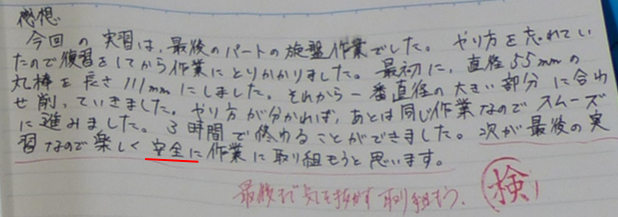 感想
今回の実習は、最後のパートの旋盤作業でした。やり方を忘れてい
たので復習をしてから作業にとりかかりました。最初に、直径55mmの
丸棒を長さ111mmにしました。それから一番直径の大きい部分に合わ
せ削っていきました。やり方が分かれば、あとは同じ作業なのでスムーズ
に進みました。3時間で終わることができました。次が最後の実
習なので楽しく安全に作業に取り組もうと思います。
最後まで気を抜かず取り組もう。
検